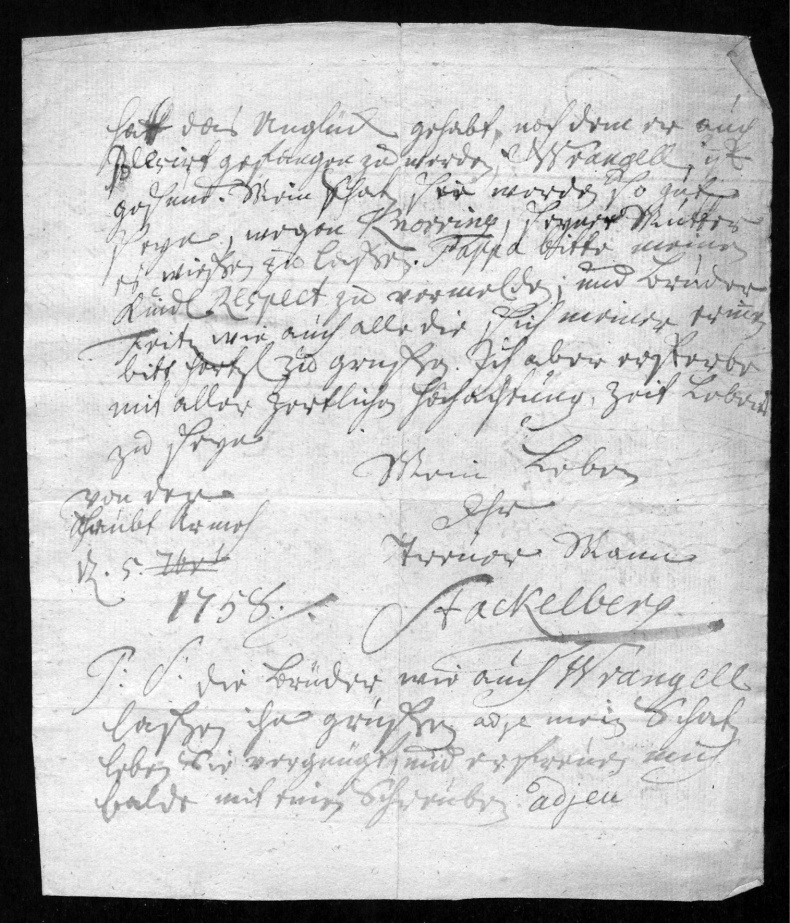 hatt das Unglück gehabt, nach dem er auch
Blessirt gefangen zu werden, Wrangell, ist
gesund. Mein Schatz Sie werden so gut
seyn, wegen Knorring, seyner Mutter
es wissen zu lassen. Pappa bitte meinen
Kindl Respect zu vermelden, und Brüder
Fritz wie auch alle die sich meiner erinnern
bitt hertzl zu grüssen. Ich aber ersterbe
mit aller Zertlichen Hochachtung, Zeit Lebens
zu seyn
Mein Leben
Ihr
Treuer Mann
Stackelberg
von der
Haubt Armeh
d. 5. 7br
1758.
P. S. die Brüder wie auch Wrangell
lassen ihn grüssen adje mein Schatz
leben Sie vergnügt, und erfreuen mich
balde mit einen Schreuben adjeu